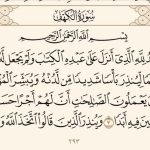 سُورَةُ الْكَهْفِ
بِسْمِ اللَّهِ الرَّحْمَٰنِ الرَّحِيمِ
لِلَّهِ الَّذِي أَنزَلَ عَلَىٰ عَبْدِهِ الْكِتَابَ وَلَمْ يَجْعَل لَّهُ
لِّيُنذِرَ بَأْسًا شَدِيدًا مِّن لَّدُنْهُ وَيُبَشِّرَ الْمُؤْمِنِينَ
يَعْمَلُونَ الصَّالِحَاتِ أَنَّ لَهُمْ أَجْرًا حَسَنًا
فِيهِ أَبَدًا ۝ وَيُنذِرَ الَّذِينَ قَالُوا اتَّخَذَ اللَّهُ
٢٩٣